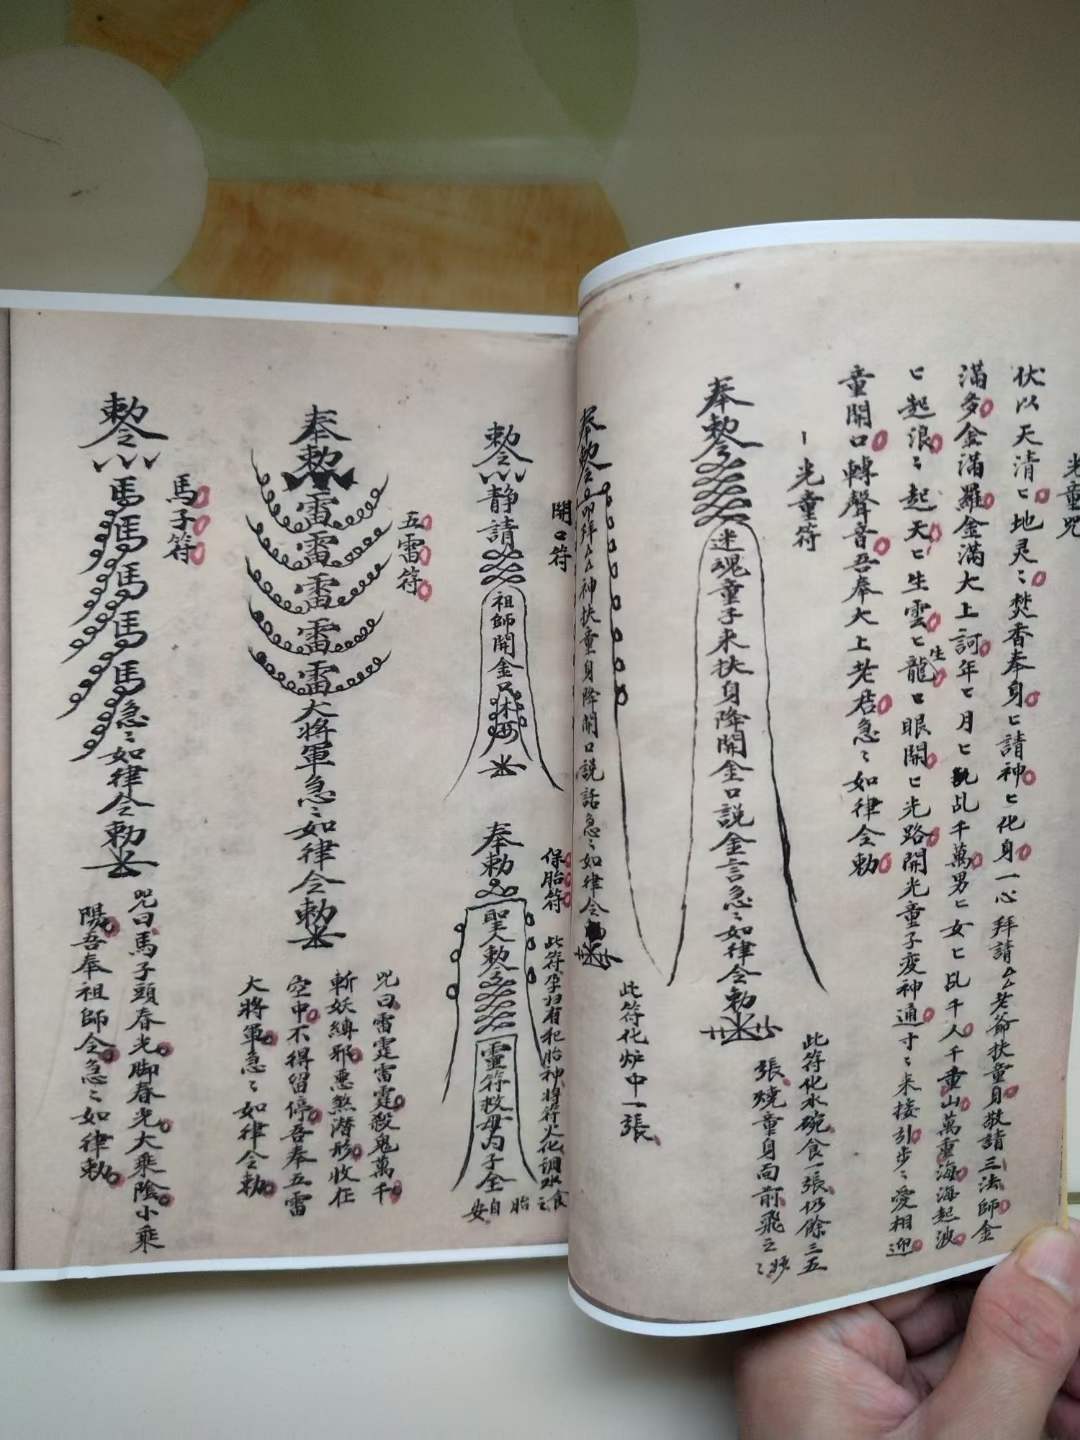 光童咒
伏以天清ヒ地灵ミ焚香奉身ヒ請神ヒ化身一心拜請厶厶老爺扶童身敬請三法師金
滿多金滿羅金滿大上訶年ヒ月ヒ乩千萬男ヒ女ヒ乩千人千重山萬重海海起波
ヒ起浪ミ起天ヒ生雲ヒ生龍口眼開ヒ光路開光童子変神通寸ミ来接引步ミ愛相迎
童開口轉聲音吾奉大上老君急ミ如律令勅
光童符
奉勅令
迷魂童子来扶身降開金口説金言急ミ如律令勅
此符化水碗食一張仍餘三五
張燒童身向前飛之
奉勅令
神扶童身降開口説話急ミ如律令
此符化炉中一張
開口符
勅令靜請
祖師開金口
保胎符
此符孕妇有犯胎神將符火化調水食
之胎自安
奉勅
聖人勅令
靈符救母子全
五雷符
奉勅令
雷雷雷雷雷大將軍急ミ如律令勅
咒曰雷霆雷霆殺鬼萬千
斬妖縛邪惡煞潛形收在
空中不得留停吾奉五雷
大將軍急ミ如律令勅
馬子符
勅令
馬馬馬馬馬急ミ如律令勅
咒曰馬子頭春光脚春光大乘陰小乘
陽吾奉祖師令急ミ如律勅